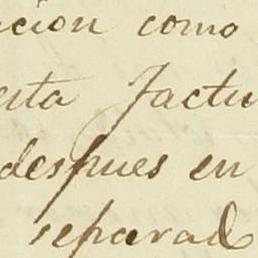 ación como
esta factu
despues en
separad